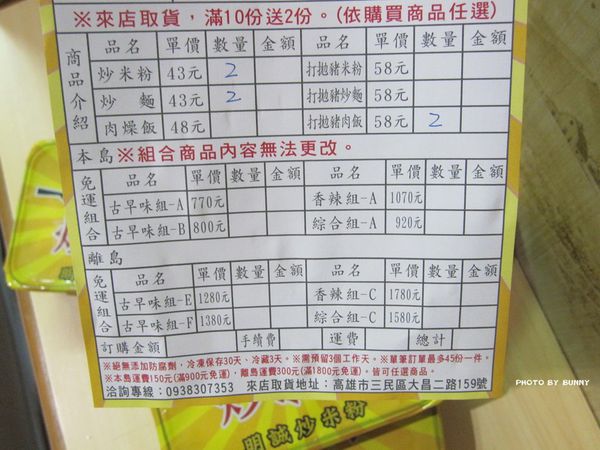 ※來店取貨，滿10份送2份。(依購買商品任選)
商品介紹
品名 單價 數量 金額 品名 單價 數量 金額
炒米粉 43元 2 打拋豬米粉 58元
炒麵 43元 2 打拋豬炒麵 58元
肉燥飯 48元 打拋豬肉飯 58元 2
本島※組合商品內容無法更改。
免運組合
品名 單價 數量 金額 品名 單價 數量 金額
古早味組-A 770元 香辣組-A 1070元
古早味組-B 800元 綜合組-A 920元
離島
免運組合
品名 單價 數量 金額 品名 單價 數量 金額
古早味組-E 1280元 香辣組-C 1780元
古早味組-F 1380元 綜合組-C 1580元
訂購金額 手續費 運費 總計
※絕無添加防腐劑，冷凍保存30天、冷藏3天。※需預留3個工作天。※單筆訂單最多45份一件。
※本島運費150元(滿900元免運)，離島運費300元(滿1800元免運)，皆可任選商品。
洽詢專線：0938307353 來店取貨地址：高雄市三民區大昌二路159號
PHOTO BY BUNNY
明誠炒米粉